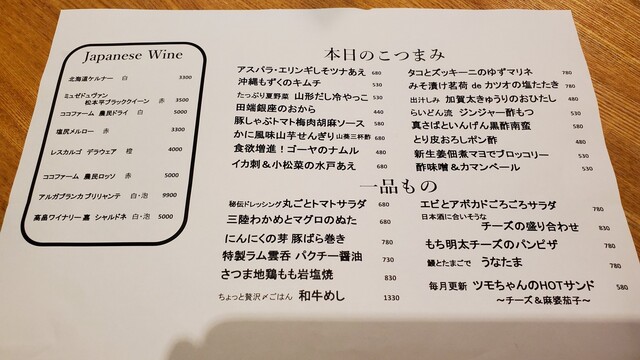 Japanese Wine
北海道ケルナー 白 3300
ミュゼドュヴァン
松本平ブラッククイーン 赤 3500
ココファーム 農民ドライ 白 5000
塩尻メルロー 赤 3300
レスカルゴ デラウェア 橙 4000
ココファーム 農民ロッソ 赤 5000
アルガブランカ ブリリャンテ 白・泡 9900
高畠ワイナリー 嘉 シャルドネ 白・泡 5000
本日のこつまみ
アスパラ・エリンギしそツナあえ 680
沖縄もずくのキムチ 530
たっぷり夏野菜 山形だし冷やっこ 530
田端銀座のおから 440
豚しゃぶトマト梅肉胡麻ソース 580
かに風味山芋せんぎり山葵三杯酢 680
食欲増進！ゴーヤのナムル 480
イカ刺＆小松菜の水戸あえ 680
タコとズッキーニのゆずマリネ 780
みそ漬け茗荷 de カツオの塩たたき 780
出汁しみ 加賀太きゅうりのおひたし 480
らいどん流 ジンジャー酢もつ 530
真さばといんげん黒酢南蛮 580
とり皮おろしポン酢 480
新生姜佃煮マヨでブロッコリー 530
酢味噌＆カマンベール 530
一品もの
秘伝ドレッシング！丸ごとトマトサラダ 680
三陸わかめとマグロのぬた 680
にんにくの芽 豚ばら巻き 780
特製ラム雲呑 パクチー醤油 730
さつま地鶏もも岩塩焼 830
ちょっと贅沢〆ごはん 和牛めし 1330
エビとアボカドごろごろサラダ 780
日本酒に合いそうな
チーズの盛り合わせ 830
もち明太チーズのパンピザ 780
鰻とたまごで うなたま 780
毎月更新 ツモちゃんのHOTサンド 580
～チーズ＆麻婆茄子～